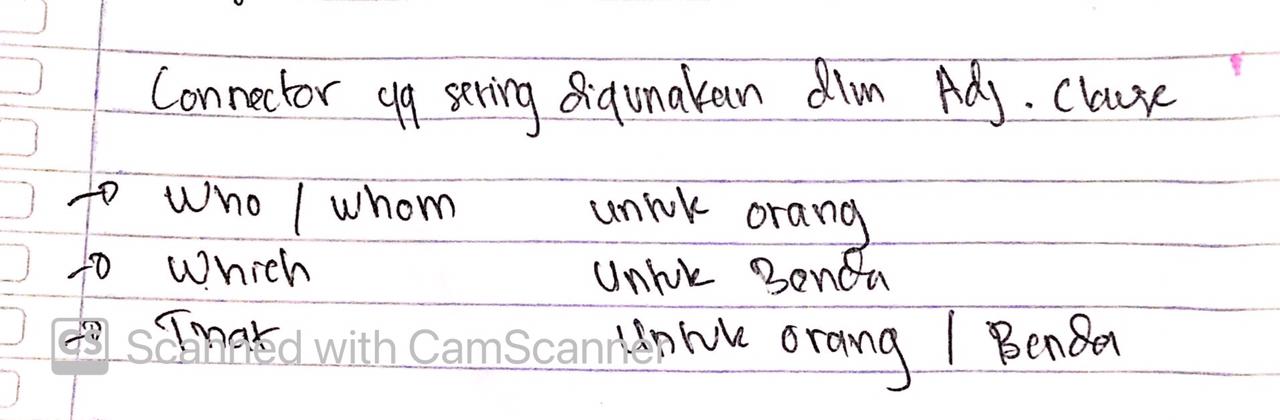 Connector yg sering digunakan dlm Adj. Clause
→ Who / whom untuk orang
→ Which Untuk Benda
→ That Untuk orang / Benda
CS Scanned with CamScanner